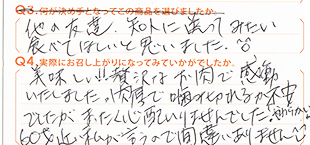 Q3.何が決め手となってこの商品を選びましたか。
他の友達、知人に送ってみたい
食べてほしいと思いました。
Q4.実際にお召し上がりになってみていかがでしたか。
美味しい!!贅沢なお肉で感動
いたしました。肉厚で噛み切れるか不安
でしたが、まったく心配いりませんでした。やわらかい
60才近い私が言うので間違いありません